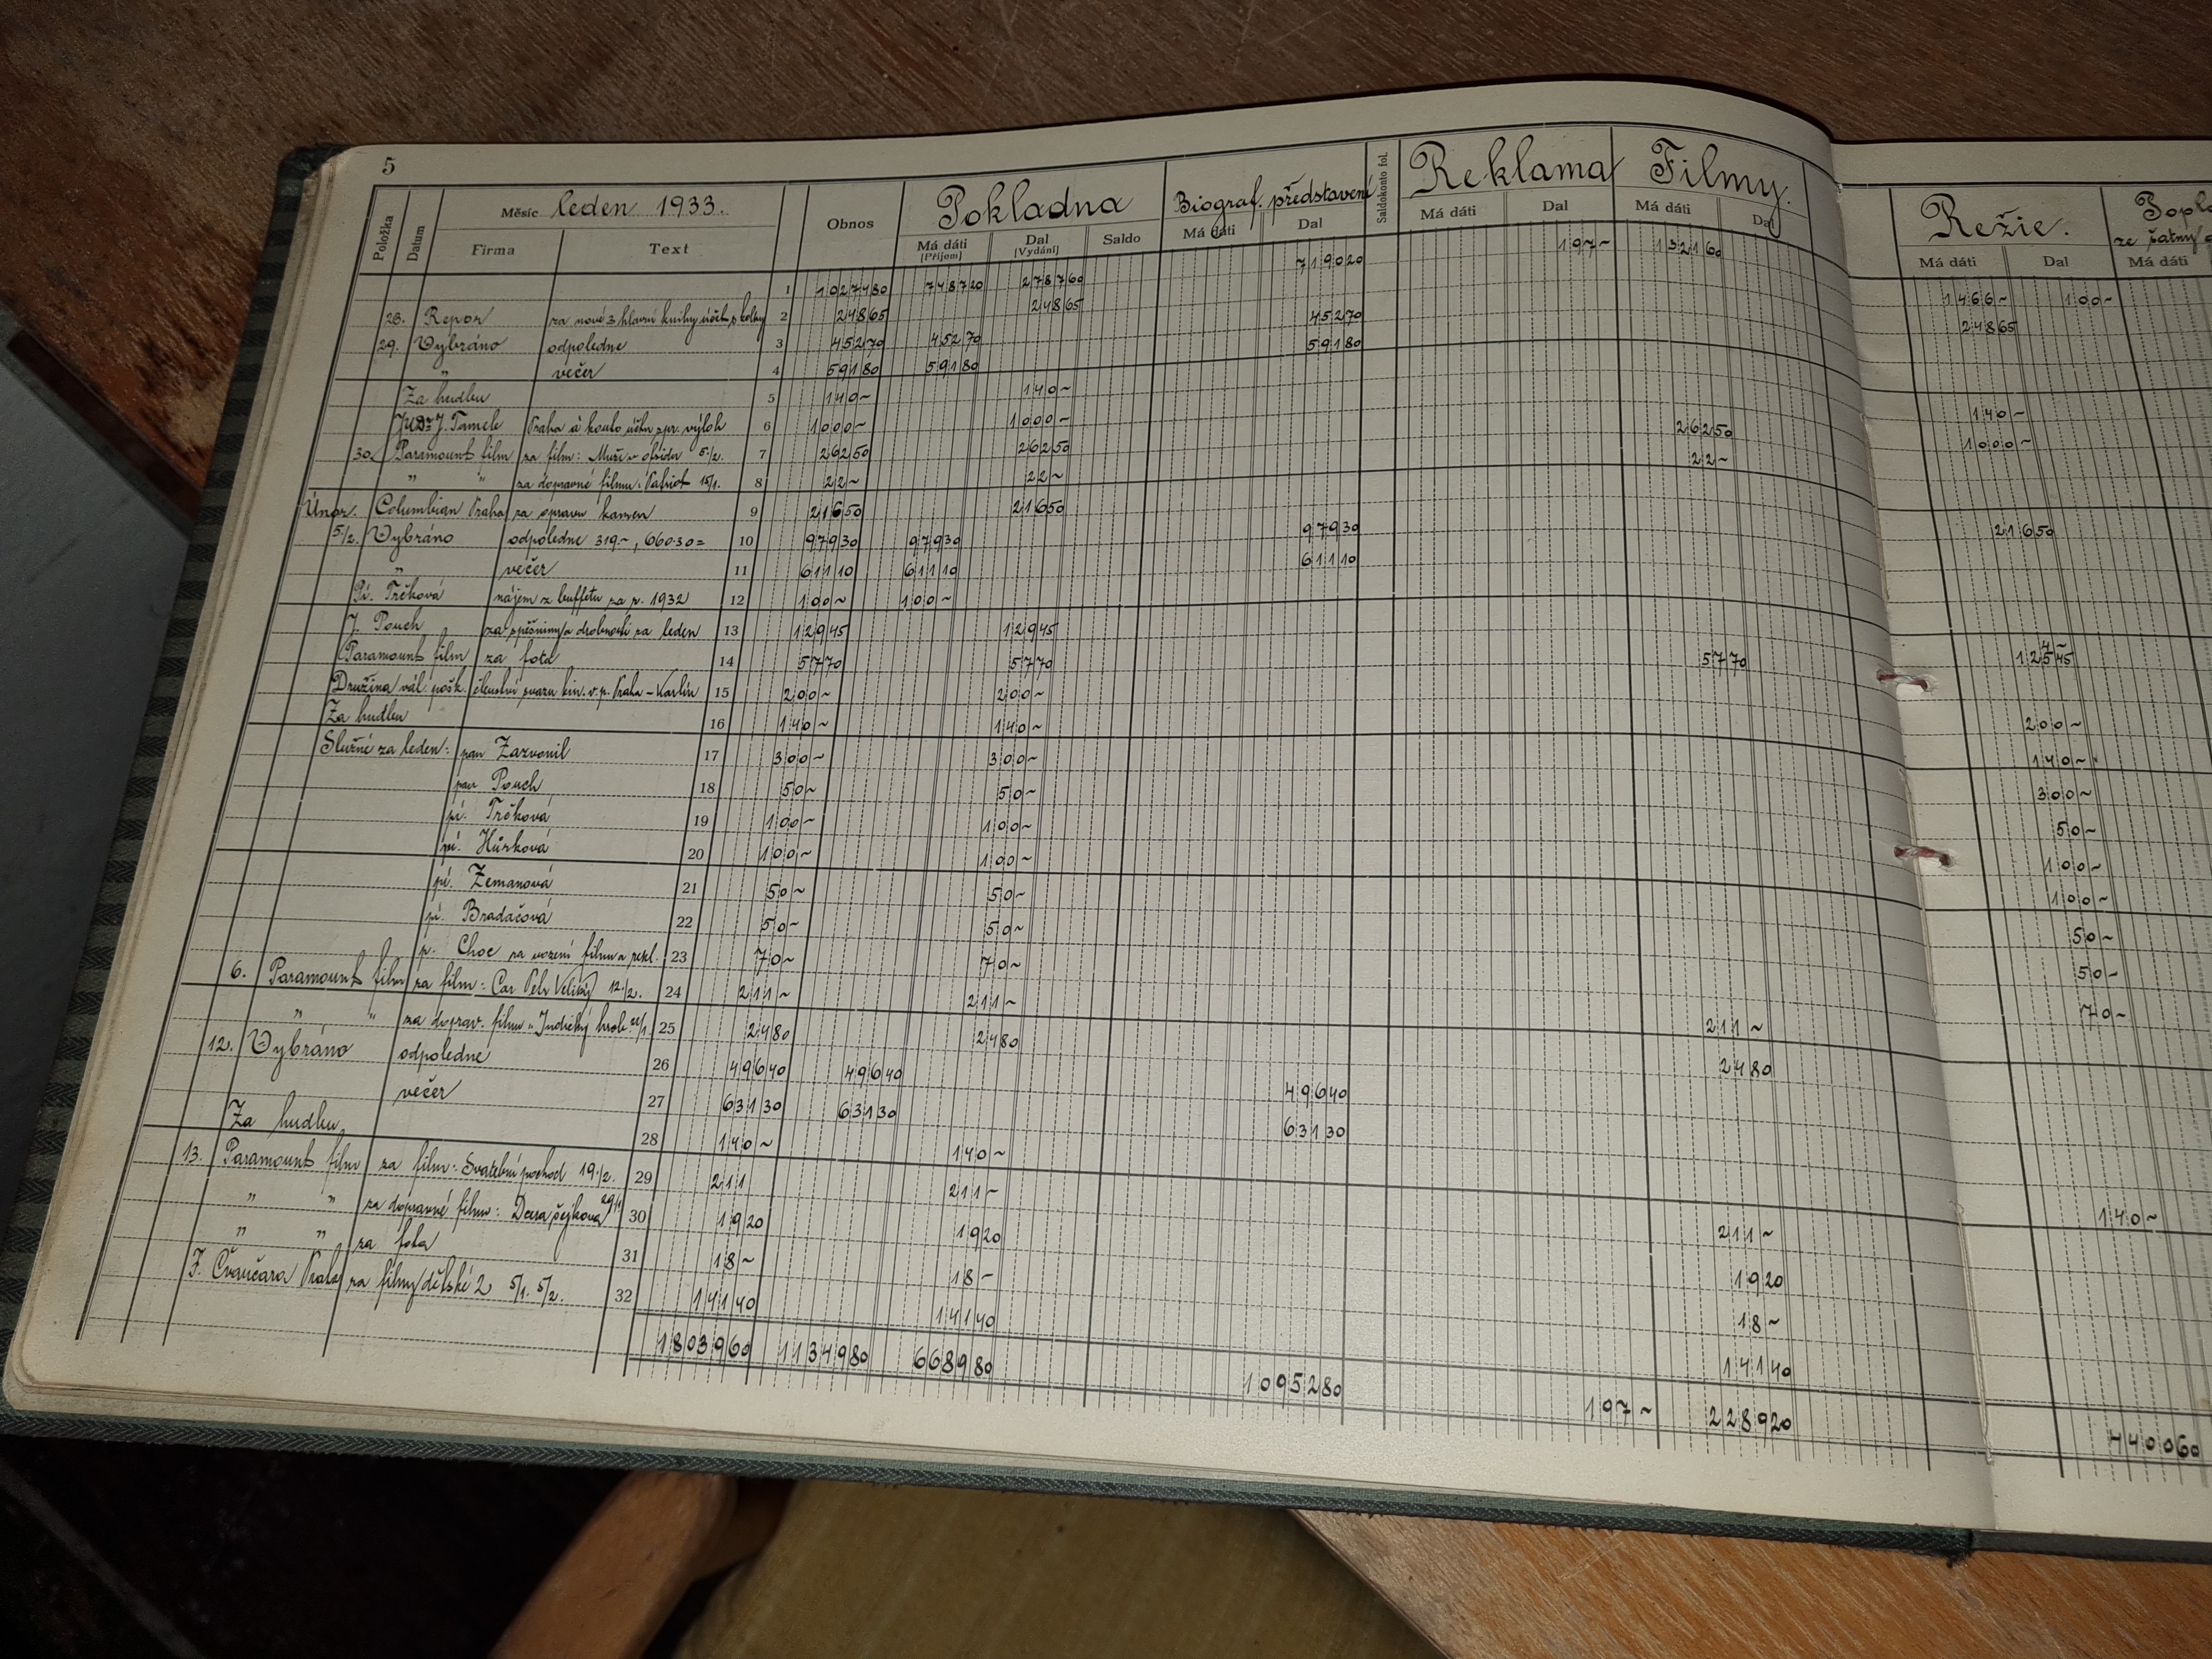 5
Položka Datum Měsíc leden 1933. Obnos Pokladna Biograf. představení Saldokonto fol. Reklama Filmy. Režie.
Firma Text Má dáti (Příjem) Dal (Vydání) Saldo Má dáti Dal Má dáti Dal Má dáti Dal Má dáti Dal Má dáti
1 1027480 748720 278760 719020 197~ 132160 1466~ 100~
28. Repor za nové 3 hlavní knihy účet. s kolky 2 24865 24865 24865
29. Vybráno odpoledne 3 45270 45270 45270
„ večer 4 59180 59180 59180
Za hudbu 5 140~ 140~ 140~
JUDr J. Tamele Praha á konto účtu spr. výloh 6 1000~ 1000~ 1000~
30. Paramount film za film: Muži v 5./2. 7 26250 26250 26250
„ „ za dopravné filmu: Patriot 15/1. 8 22~ 22~ 22~
Únor. Columbian Praha za opravu kamen 9 21650 21650 21650
5/2. Vybráno odpoledne 319.~, 660.30= 10 97930 97930 97930
„ večer 11 61110 61110 61110
Pí. Trčková nájem z buffetu za r. 1932 12 100~ 100~
J. Pouch za spěšniny a drobnosti za leden 13 12945 12945 4~ 12545
Paramount film za fota 14 5770 5770 5770
Družina vál. pošk. členství svazu kin. v.p. Praha - Karlín 15 200~ 200~ 200~
Za hudbu 16 140~ 140~ 140~
Služné za leden: pan Zazvonil 17 300~ 300~ 300~
pan Pouch 18 50~ 50~ 50~
pí. Trčková 19 100~ 100~ 100~
pí. Hůrková 20 100~ 100~ 100~
pí. Zemanová 21 50~ 50~ 50~
pí. Bradáčová 22 50~ 50~ 50~
p. Choc za vození filmu a rekl. 23 70~ 70~ 70~
6. Paramount film za film: Car Petr Veliký 12./2. 24 211~ 211~ 211~
„ „ za doprav. filmu „Indický hrob 22/1. 25 2480 2480 2480
12. Vybráno odpoledne 26 49640 49640 49640
večer 27 63130 63130 63130
Za hudbu 28 140~ 140~ 140~
13. Paramount film za film: Svatební pochod 19./2. 29 211 211~ 211~
„ „ za dopravné filmu: Dcera šejkova 29/1 30 1920 1920 1920
„ „ za fota 31 18~ 18~ 18~
F. Čvančara Praha za filmy dětské 2 5/1. 5/2. 32 14140 14140 14140
1803960 1134980 668980 1095280 197~ 228920 440060